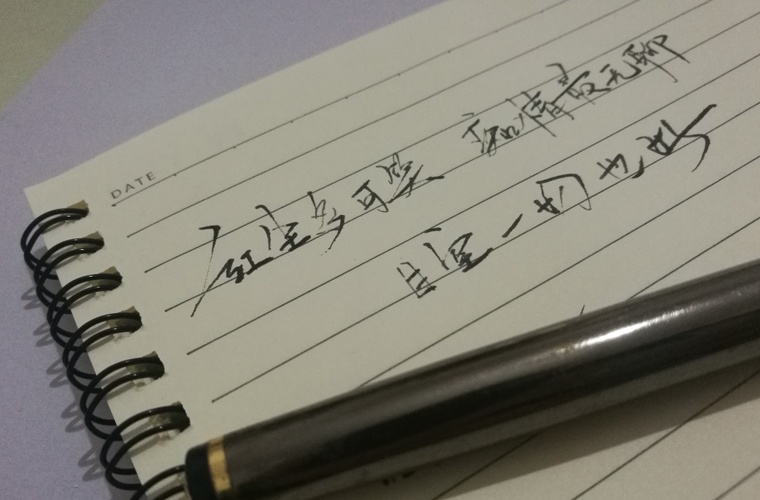 DATE
红尘多可笑 痴情最无聊
目空一切也好